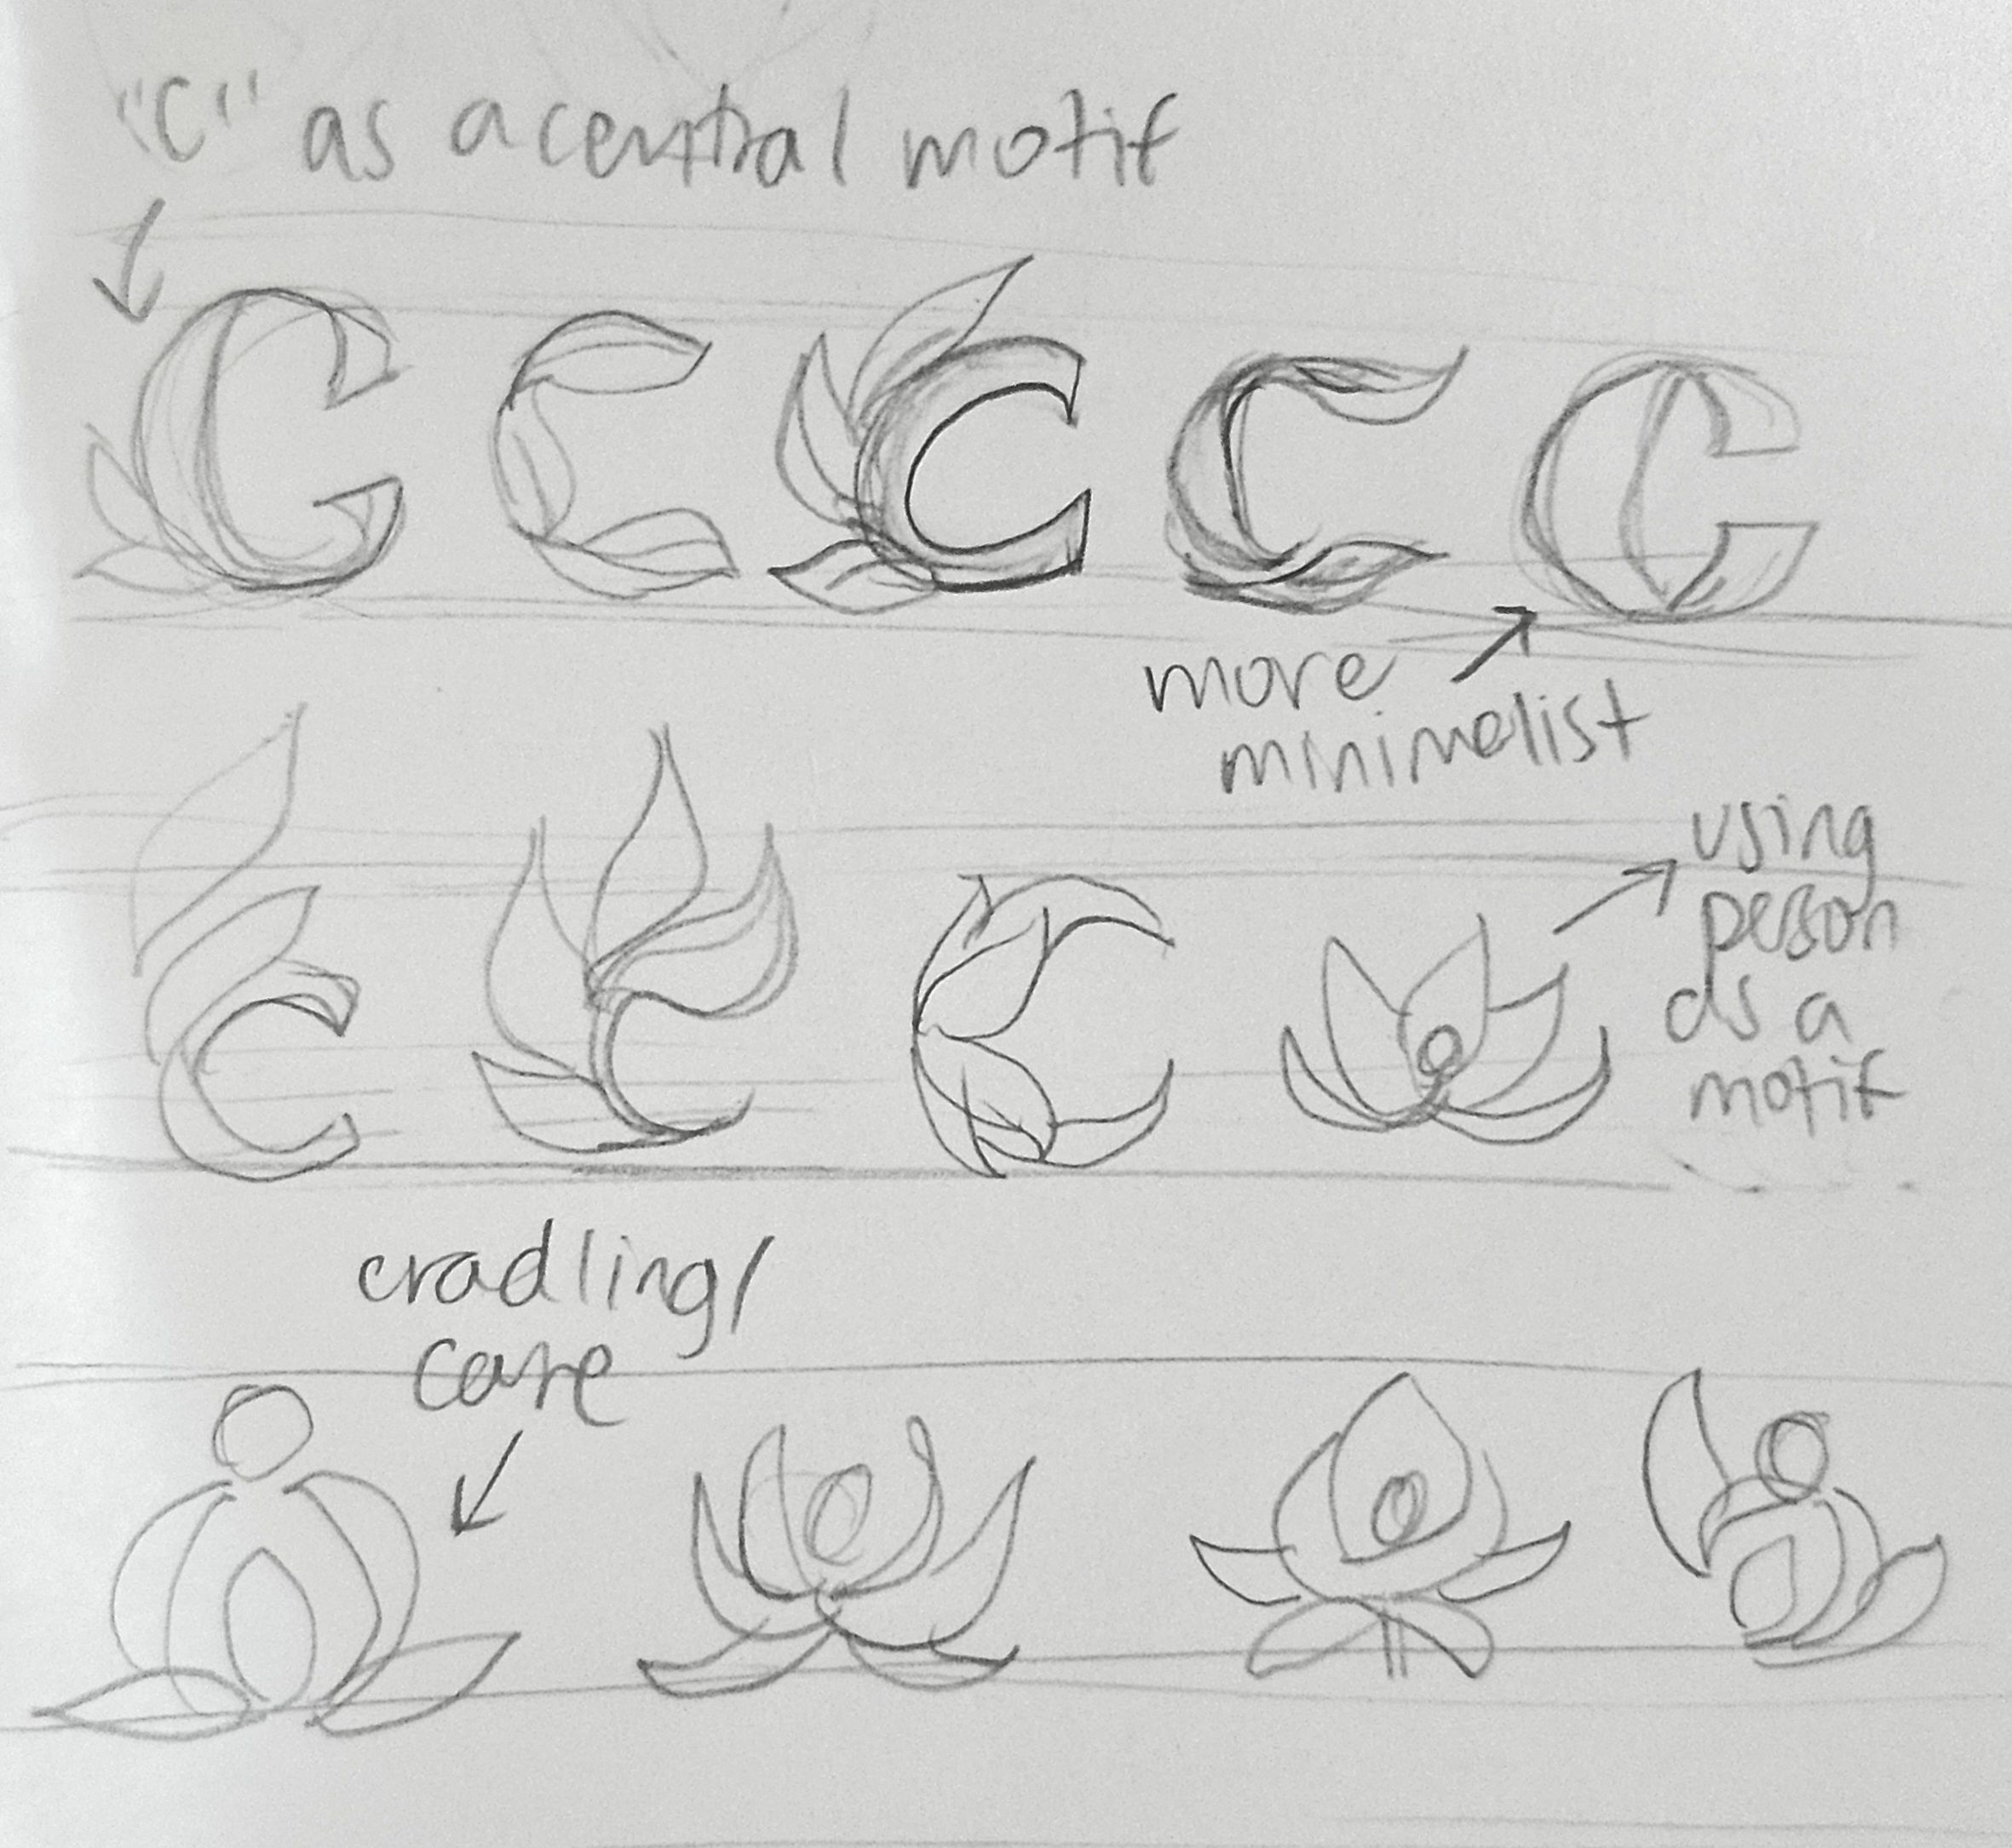 "C" as a central motif
more
minimalist
using
person
as a
motif
cradling/
care